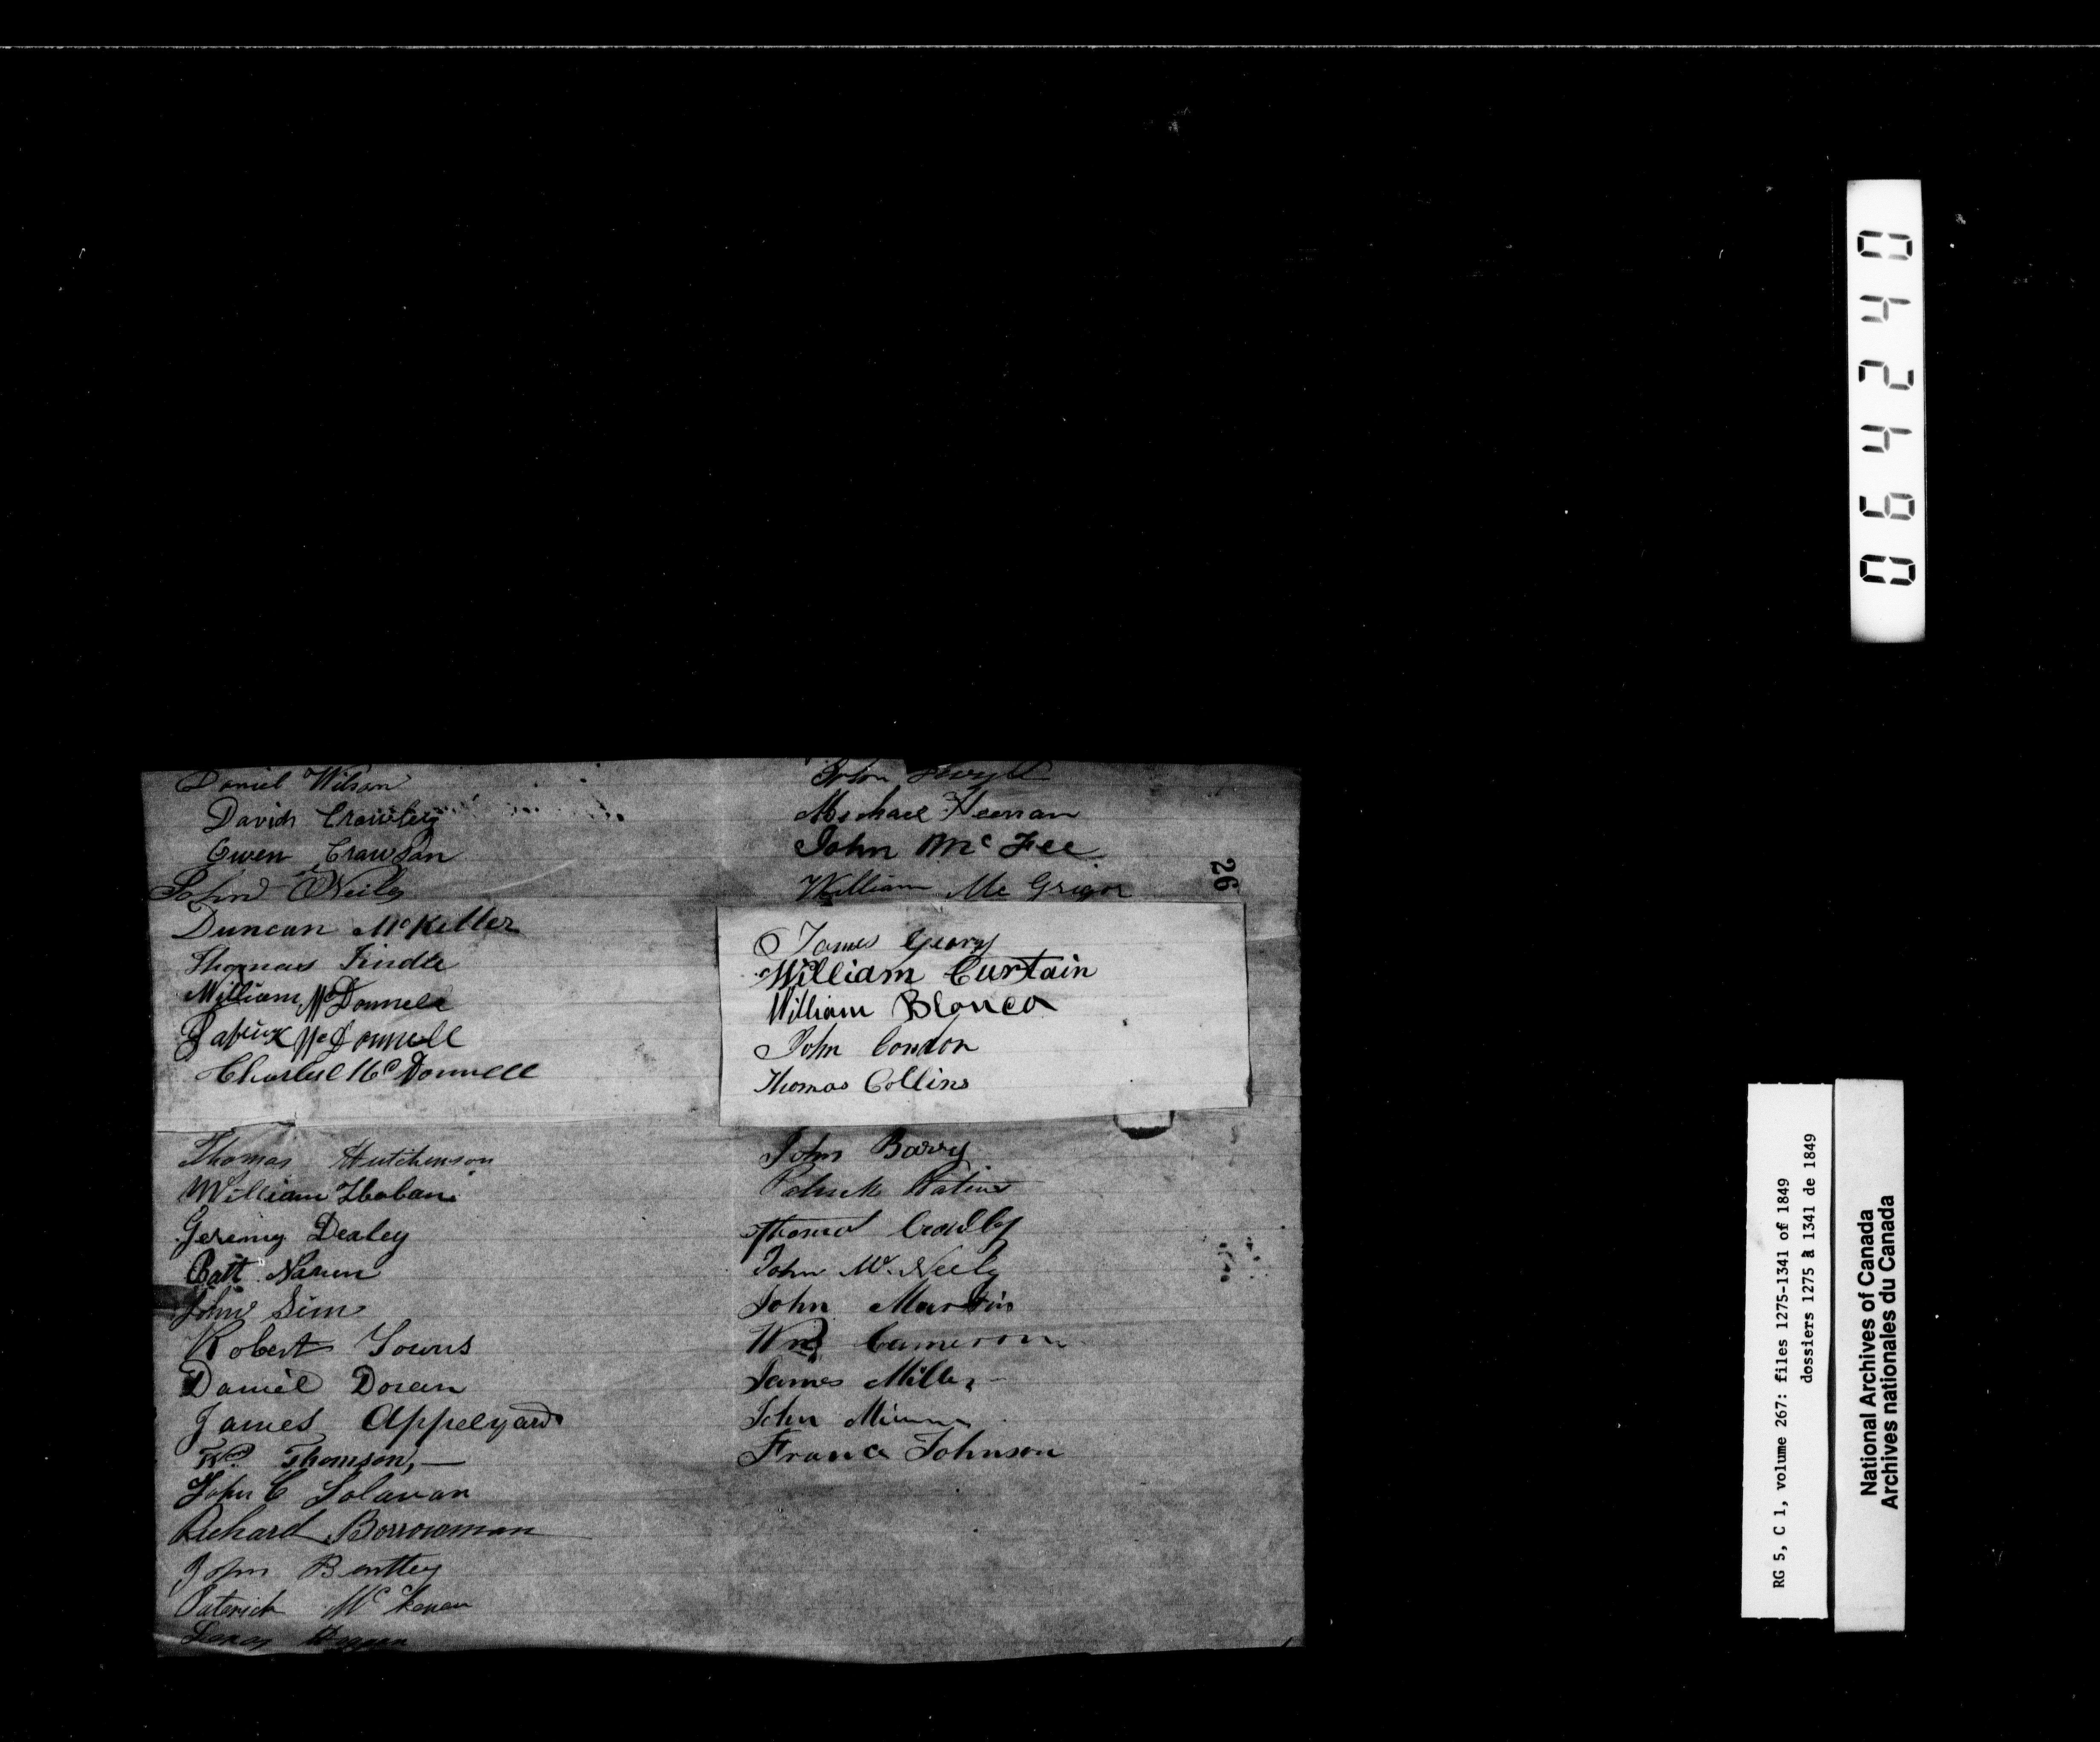 Daniel Wilson
David Crowley
Owen Crawson
John O'Neily
Duncan McKeller
Thomas Findle
William McDonnell
Patrick McDonnell
Charles McDonnell
Thomas Hutchenson
William
Jeremy Dealey
Patt Naren
John Sim
Robert Towns
Daniel Doran
James Appelyard
Thomson,
John C Solavan
Richard Borrowman
John Benttey
Paterick McKenan
John
Michael Heenan
John McFee
William Mc Grigor
26
James Geary
William Curtain
William Blanca
John Condon
Thomas Collins
John Barry
Patrick
Thomas
John McNeely
John Martin
Wm Cameron
James Miller
John
Franca Johnson
042490
RG 5, C 1, volume 267: files 1275-1341 of 1849
dossiers 1275 à 1341 de 1849
National Archives of Canada
Archives nationales du Canada